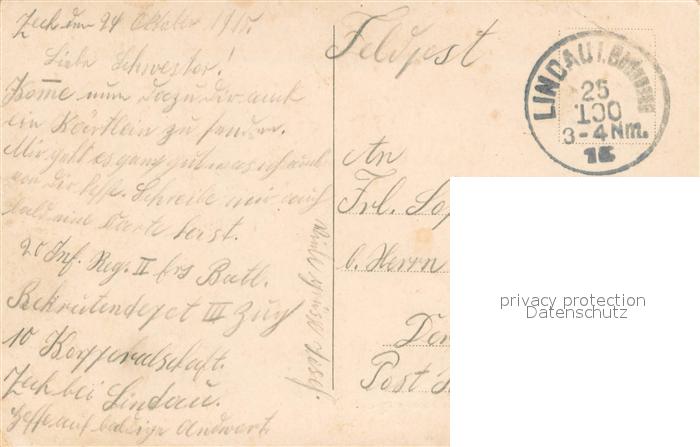 Zech den 24 Oktober 1915.
Liebe Schwester!
Kom̅e nun dazu Dir auch
ein Kärtlein zu senden.
Mir geht es ganz gut was ich auch
von Dir hoffe. Schreibe mir auch
bald eine Karte
20 Inf. Reg. II Ers Batl.
Rekrutendepot III Zug
10 Korporalschaft.
Zech bei Lindau.
Hoffe auf baldige Andwort.
Viele Grüsse Josef.
Feldpost
LINDAU i. BODENSEE
25
3-4 Nm.
15
An
Frl.
b. Herrn
Post
privacy protection
Datenschutz